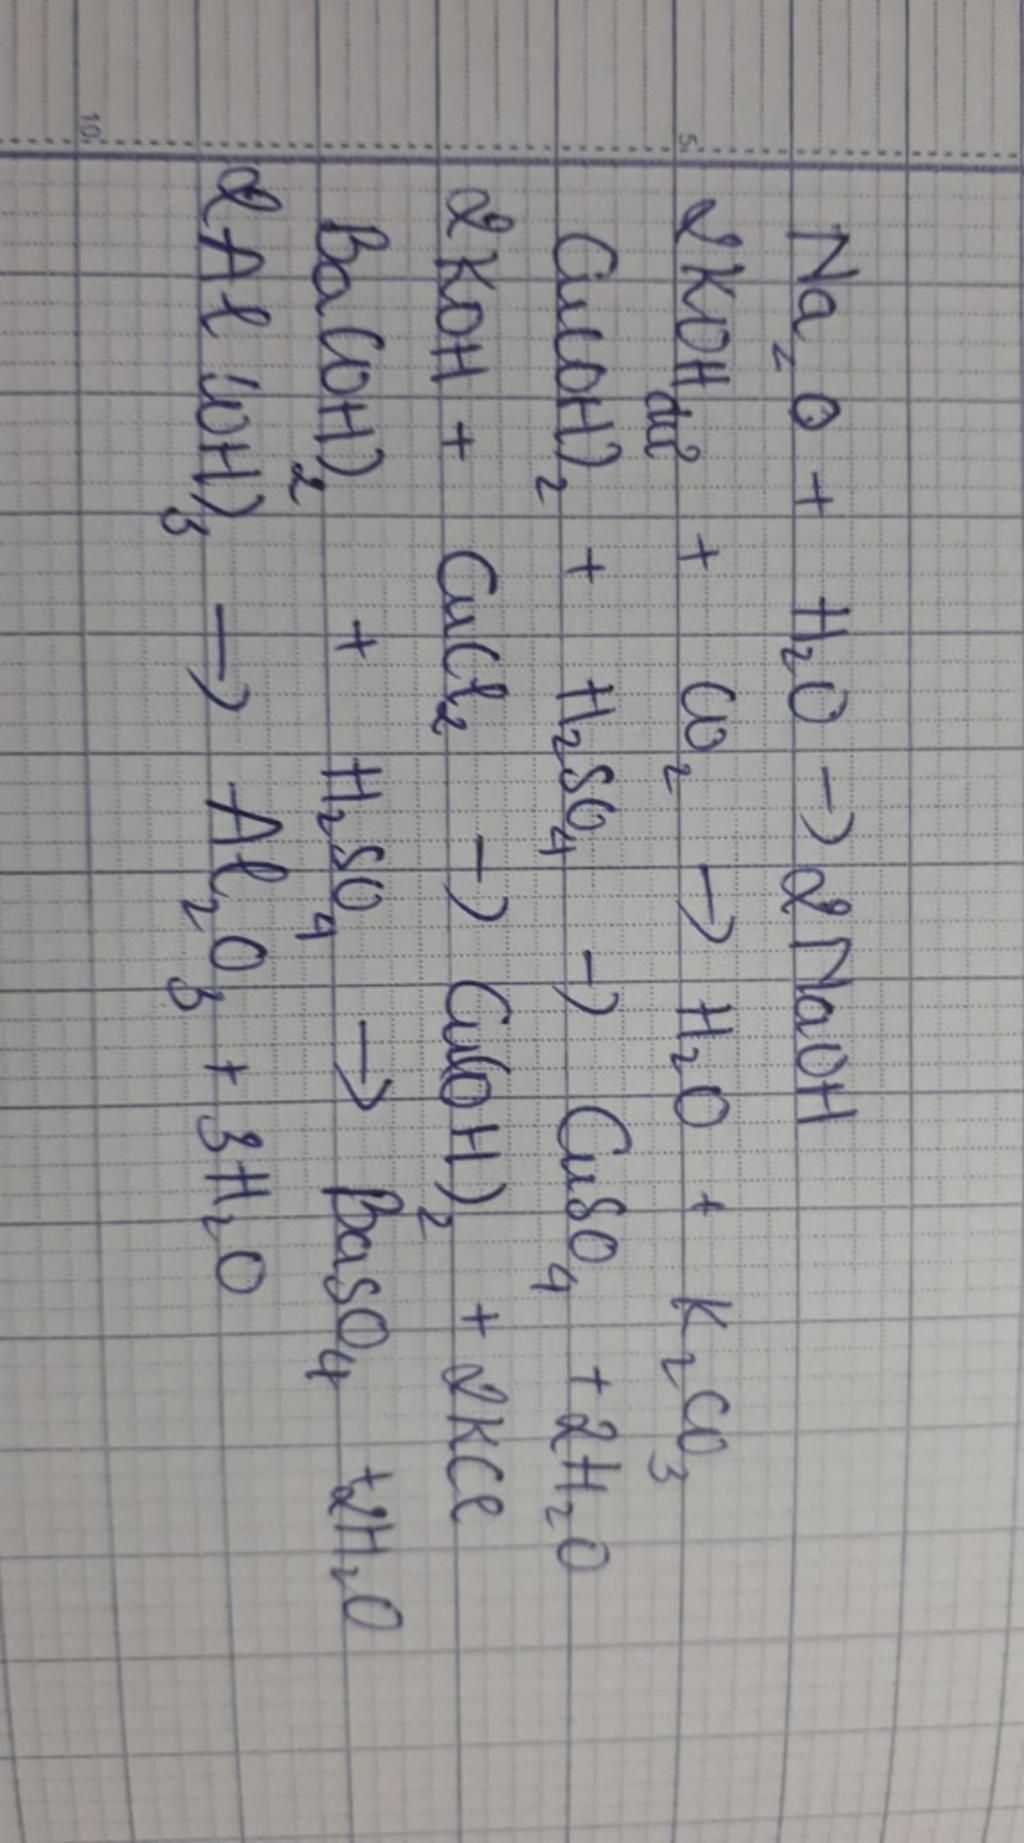 Na₂O + H₂O → 2NaOH
2KOH dư + CO₂ → H₂O + K₂CO₃
Cu(OH)₂ + H₂SO₄ → CuSO₄ + 2H₂O
2KOH + CuCl₂ → Cu(OH)₂ + 2KCl
Ba(OH)₂ + H₂SO₄ → BaSO₄ + 2H₂O
2Al(OH)₃ → Al₂O₃ + 3H₂O
5
10